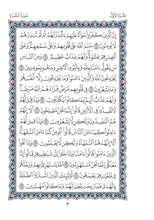 الجزء الأول سورة البقرة
إن الذين كفروا سواء عليهم ءأنذرتهم أم لم تنذرهم
لا يؤمنون ٦ ختم الله على قلوبهم وعلى سمعهم وعلى
أبصرهم غشوة ولهم عذاب عظيم ٧ ومن الناس من يقول
ءامنا بالله وباليوم الآخر وما هم بمؤمنين ٨ يخدعون الله
والذين ءامنوا وما يخدعون إلا أنفسهم وما يشعرون ٩
في قلوبهم مرض فزادهم الله مرضا ولهم عذاب أليم بما
كانوا يكذبون ١٠ وإذا قيل لهم لا تفسدوا في الأرض
قالوا إنما نحن مصلحون ١١ ألا إنهم هم المفسدون ولكن
لا يشعرون ١٢ وإذا قيل لهم ءامنوا كما ءامن الناس قالوا
أنؤمن كما ءامن السفهاء ألا إنهم هم السفهاء ولكن لا يعلمون ١٣
وإذا لقوا الذين ءامنوا قالوا ءامنا وإذا خلوا إلى شيطينهم
قالوا إنا معكم إنما نحن مستهزءون ١٤ الله يستهزئ بهم
ويمدهم في طغينهم يعمهون ١٥ أولئك الذين اشتروا الضللة
بالهدى فما ربحت تجرتهم وما كانوا مهتدين ١٦
٣